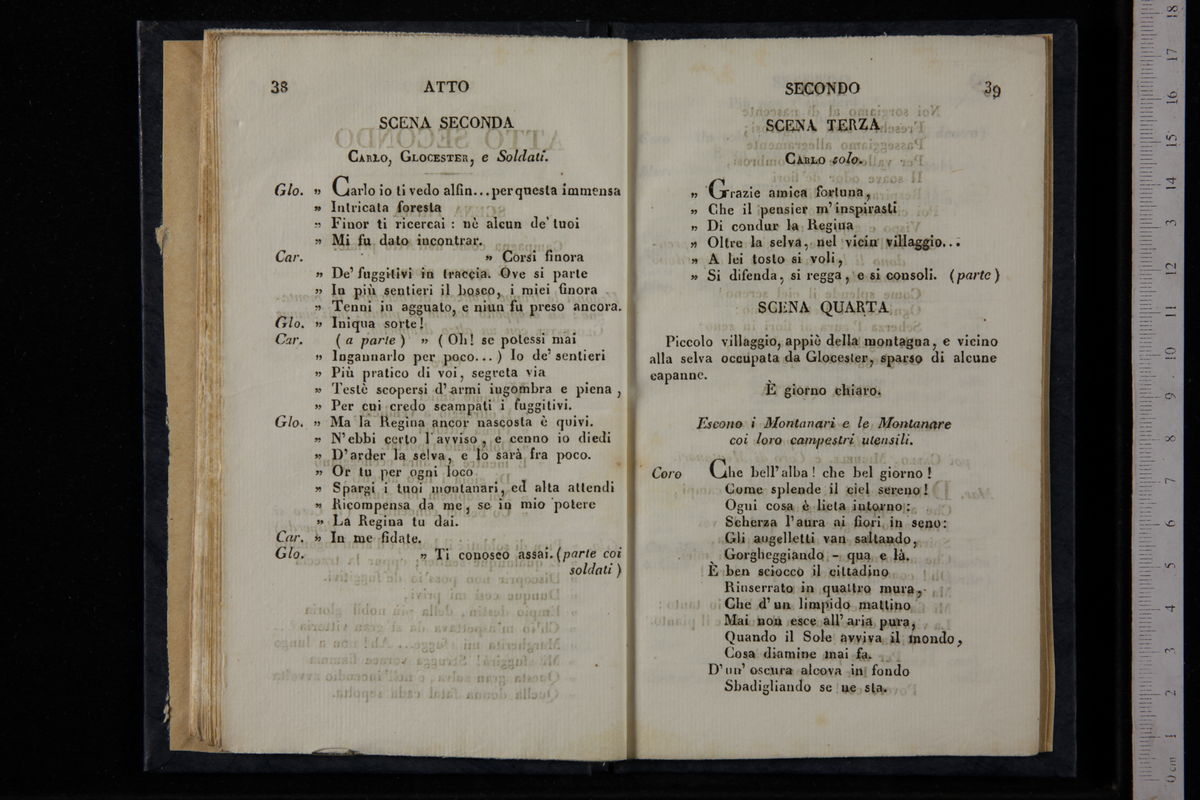 38
ATTO
SCENA SECONDA
CARLO, GLOCESTER, e Soldati.
Glo. „ Carlo io ti vedo alfin... per questa immensa
„ Intricata foresta
„ Finor ti ricercai : nè alcun de' tuoi
„ Mi fu dato incontrar.
Car. „ Corsi finora
„ De' fuggitivi in traccia. Ove si parte
„ In più sentieri il bosco, i miei finora
„ Tenni in agguato, e niun fu preso ancora.
Glo. „ Iniqua sorte!
Car. ( a parte ) „ ( Oh! se potessi mai
„ Ingannarlo per poco... ) Io de' sentieri
„ Più pratico di voi, segreta via
„ Testè scopersi d'armi ingombra e piena ,
„ Per cui credo scampati i fuggitivi.
Glo. „ Ma la Regina ancor nascosta è quivi.
„ N'ebbi certo l'avviso , e cenno io diedi
„ D'arder la selva, e lo sarà fra poco.
„ Or tu per ogni loco
„ Spargi i tuoi montanari, ed alta attendi
„ Ricompensa da me, se in mio potere
„ La Regina tu dai.
Car. „ In me fidate.
Glo. „ Ti conosco assai. (parte coi
soldati )
SECONDO
39
SCENA TERZA
CARLO solo.
„ Grazie amica fortuna,
„ Che il pensier m'inspirasti
„ Di condur la Regina
„ Oltre la selva, nel vicin villaggio...
„ A lei tosto si voli,
„ Si difenda, si regga, e si consoli. (parte)
SCENA QUARTA
Piccolo villaggio, appiè della montagna, e vicino
alla selva occupata da Glocester, sparso di alcune
capanne.
È giorno chiaro.
Escono i Montanari e le Montanare
coi loro campestri utensili.
Coro Che bell'alba! che bel giorno!
Come splende il ciel sereno!
Ogni cosa è lieta intorno:
Scherza l'aura ai fiori in seno:
Gli augelletti van saltando,
Gorgheggiando - qua e là.
È ben sciocco il cittadino
Rinserrato in quattro mura,
Che d'un limpido mattino
Mai non esce all'aria pura,
Quando il Sole avviva il mondo,
Cosa diamine mai fa.
D'un' oscura alcova in fondo
Sbadigliando se ne sta.
0 cm 1 2 3 4 5 6 7 8 9 10 11 12 13 14 15 16 17 18